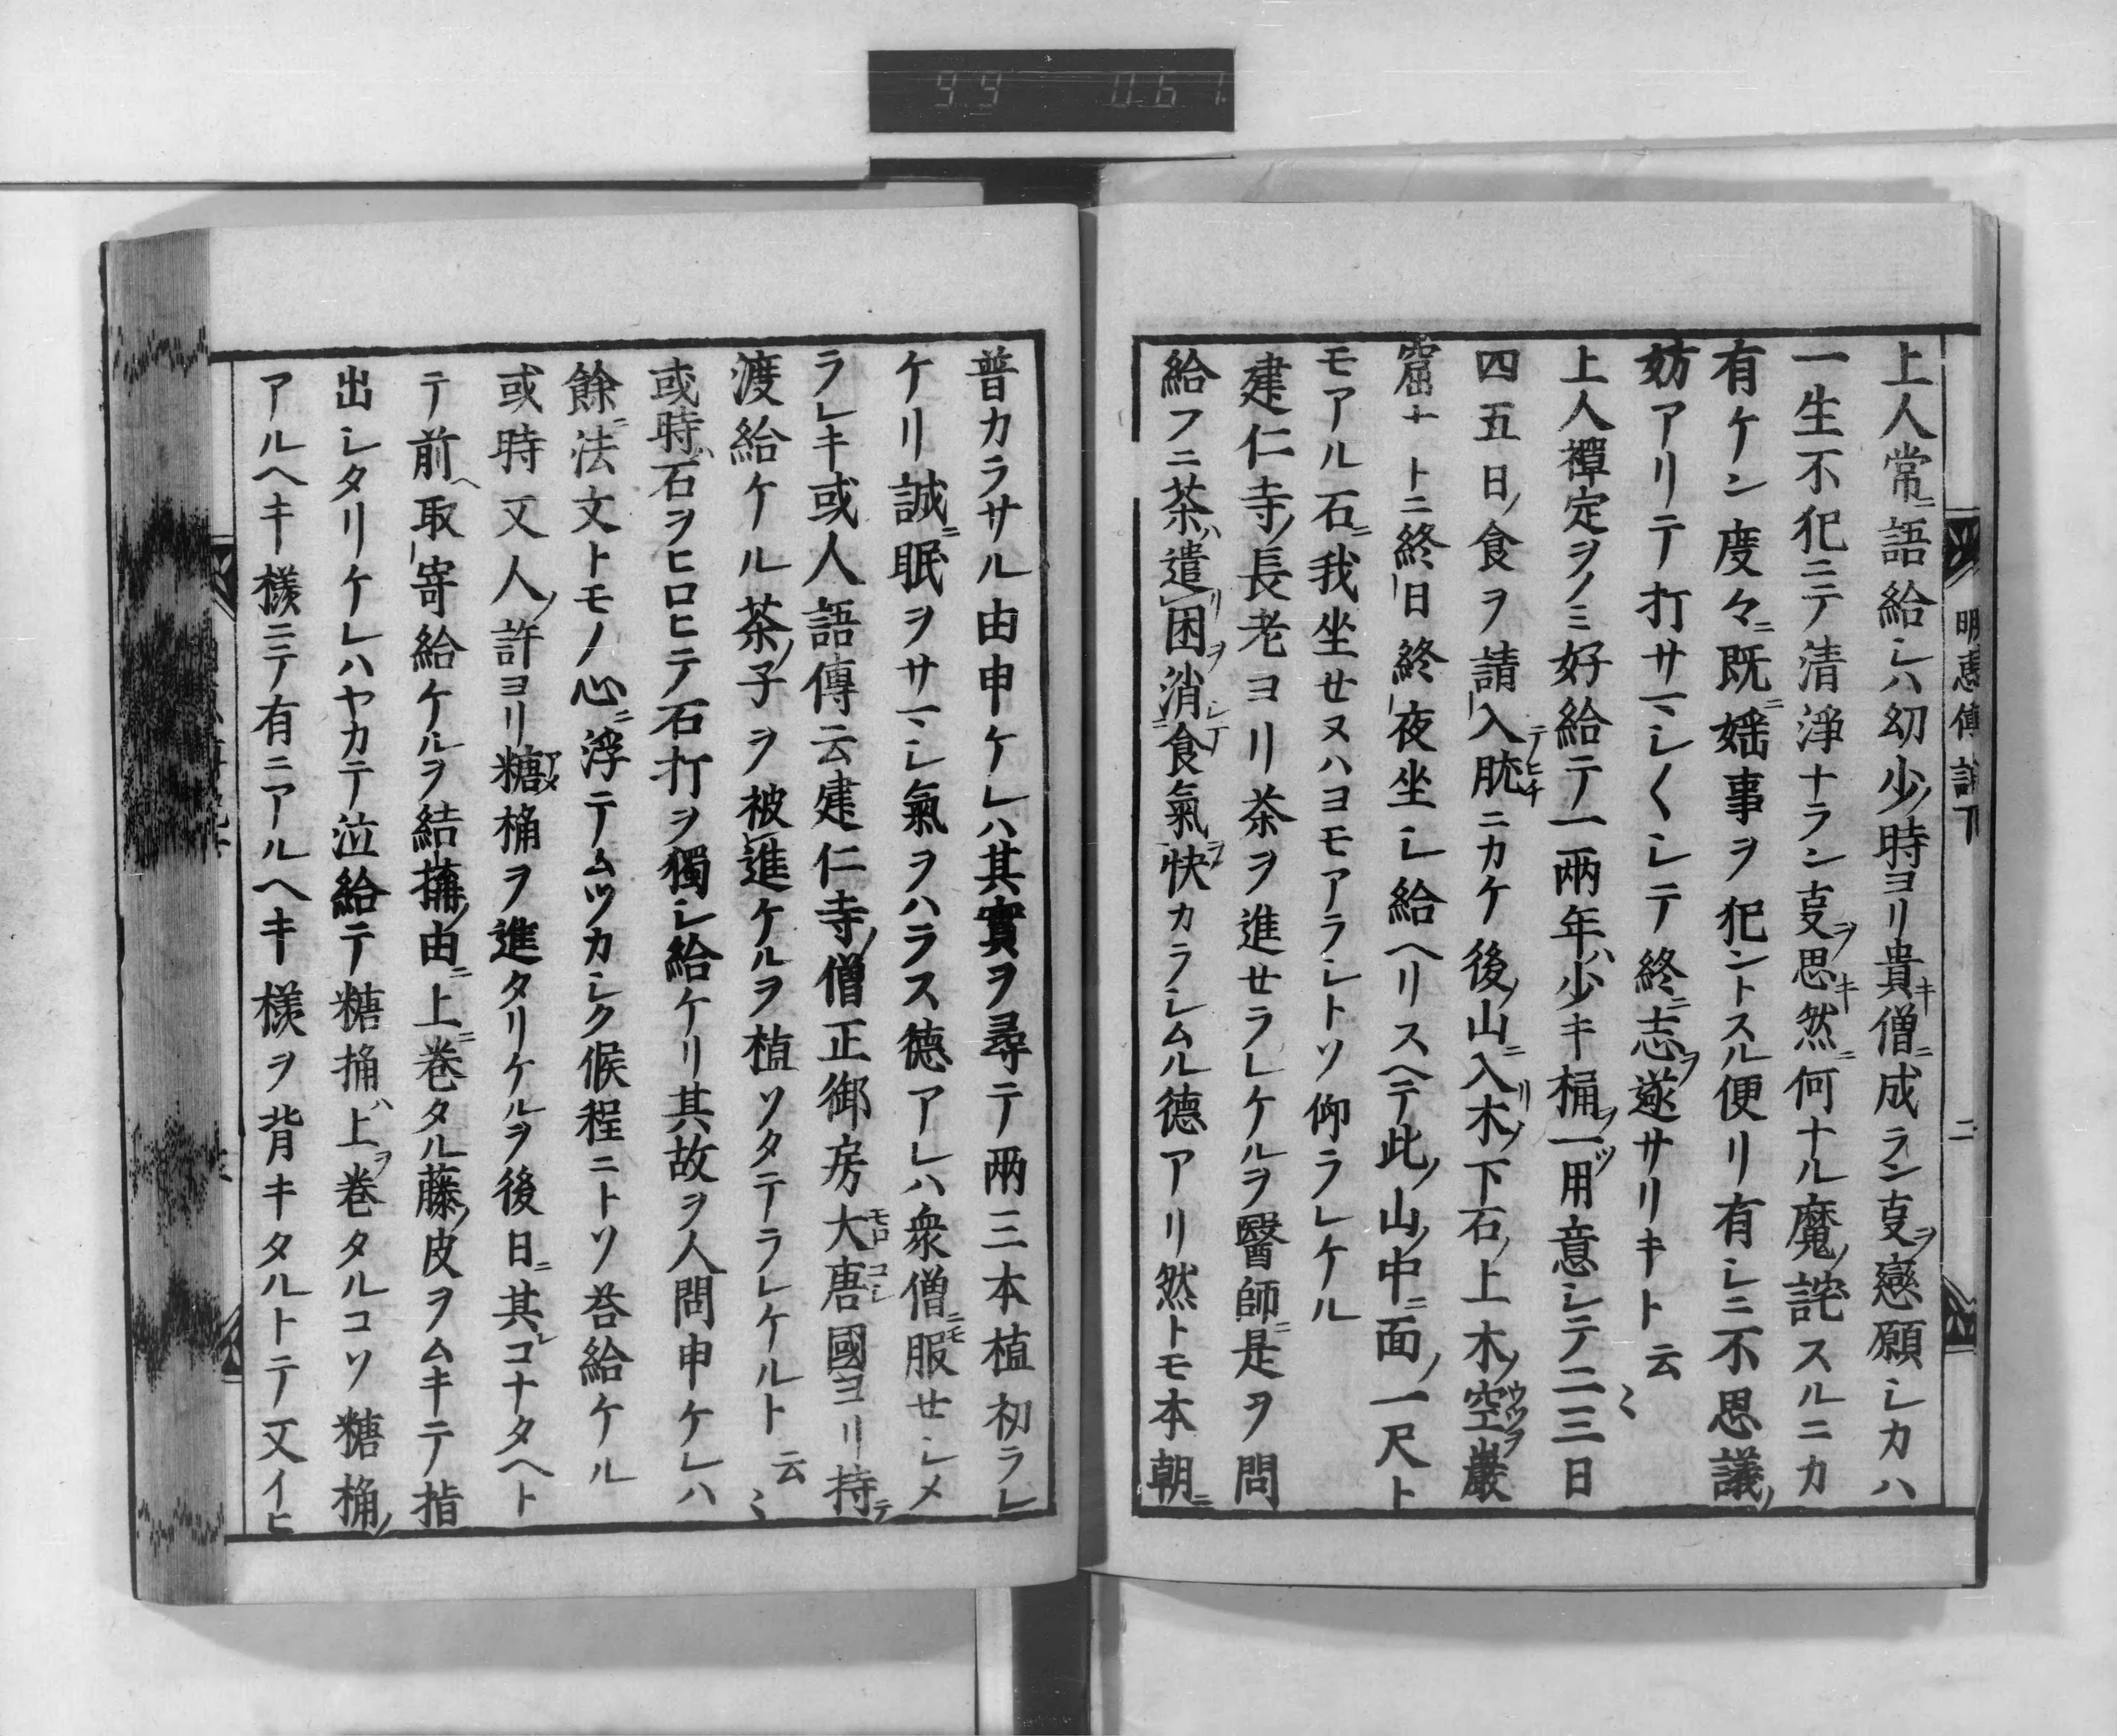 99 061
明恵傳記下 二
上人常ニ語給シハ幼少ノ時ヨリ貴キ僧ニ成ラン㕝ヲ戀願シカハ
一生不犯ニテ清淨ナラン㕝ヲ思キ然ニ何ナル魔ノ詫スルニカ
有ケン度々ニ既ニ婬事ヲ犯ントスル便リ有シニ不思議ノ
妨アリテ打サマシ〱シテ終ニ志ヲ遂サリキト云〻
上人禪定ヲノミ好給テ一兩年ハ少キ桶ヲ一ツ用意シテ二三日
四五日ノ食ヲ請入テ肱ニカケ後ノ山ニ入リ木ノ下石ノ上木ノ空巖
窟ナトニ終日終夜坐シ給ヘリスヘテ此ノ山ノ中ニ面ノ一尺ト
モアル石ニ我坐セヌハヨモアラシトソ仰ラレケル
建仁寺ノ長老ヨリ茶ヲ進セラレケルヲ醫師ニ是ヲ問
給フニ茶ハ遣リ困ヲ消シテ食氣ヲ快カラシムル德アリ然トモ本朝ニ
普カラサル由申ケレハ其實ヲ尋テ兩三本植初ラレ
ケリ誠ニ眠ヲサマシ氣ヲハラス德アレハ衆僧ニモ服セシメ
ラレキ或人語傳云建仁寺ノ僧正御房大唐國ヨリ持テ
渡給ケル茶ノ子ヲ被進ケルヲ植ソタテラレケルト云〻
或時ハ石ヲヒロヒテ石打ヲ獨シ給ケリ其故ヲ人問申ケレハ
餘ニ法文トモノ心ニ浮テムツカシク候程ニトソ荅給ケル
或時又人ノ許ヨリ糖桶ヲ進タリケルヲ後日ニ其レコナタヘト
テ前ヘ取寄給ケルヲ結桶ノ由ニ上ニ巻タル藤ノ皮ヲムキテ指
出シタリケレハヤカテ泣給テ糖桶ハ上ヲ巻タルコソ糖桶ノ
アルヘキ様ニテ有ニアルヘキ様ヲ背キタルトテ又イヒ